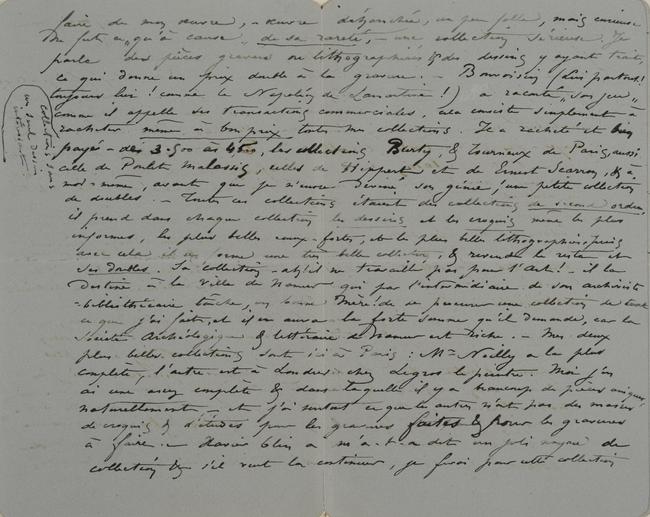 faire de mon œuvre, – œuvre déhanchée, un peu folle, mais curieuse
ne fut-ce qu'à cause de sa rareté, – une collection sérieuse. Je
parle des pièces gravées ou lithographiées & des dessins y ayant trait,
ce qui donne un prix double à la gravure. – Bonvoisin (lui partout!
toujours lui! comme le Napoléon de Lamartine!) a raconté "son jeu"
comme il appelle ses transactions commerciales, cela consiste simplement à
racheter même à bon prix toutes mes collections. Il a racheté et bien
payées – de 3.500 à les collections Burty & Tourneux de Paris, aussi
celle de Poulet Malassis, celles de Hippert et de Ernest Scarron, & à
moi-même, avant que je n'eusse deviné son génie, une petite collection
de doubles. – Toutes ces collections étaient des collections de second ordre,
il prend dans chaque collection les dessins et les croquis même les plus
informes, les plus belles eaux-fortes, & les plus belles lithographies, puis
avec cela il se forme une très belle collection, & revend le reste et
ses doubles. Sa collection – ah! il ne travaille pas pour l'Art! – il la
destine à la Ville de Namur qui par l'intermédiaire de son archiviste
-bibliothécaire tâche, en bonne Mère! de se procurer une collection de tout
ce que j'ai fait, et il en aura la forte somme qu'il demande, car la
Société Archéologique & littéraire de Namur est riche. – Mes deux
plus belles collections sont ici à Paris: Mr Noilly a la plus
complète, l'autre est à Londres chez Legros le peintre. Moi j'en
ai une assez complète & dans laquelle il y a beaucoup de pièces uniques,
naturellement – et j'ai surtout ce que les autres n'ont pas des masses
de croquis & d'études pour les gravures faites & pour les gravures
à faire. – a m'a-t-on dit un joli noyau de
collection & s'il veut la continuer, je ferai pour cette collection
collections, sans
un seul dessin